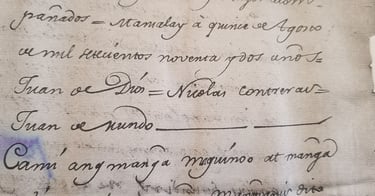 pañados = Mamalay à quince de Agosto
de mil setecientos noventa y dos años =
Juan de Dios = Nicolas Contreras =
Juan de Mundo
Camí ang manga maguinoo at manga